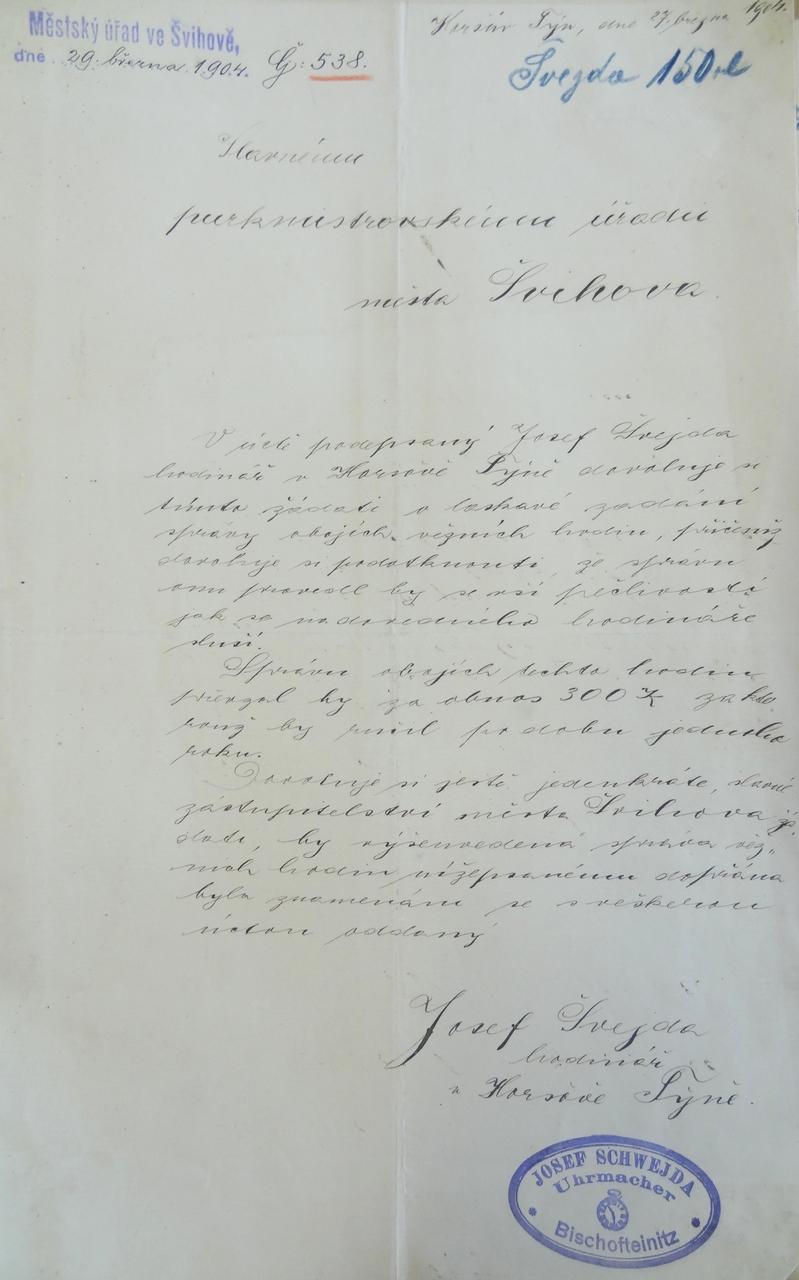 Městský úřad ve Švihově,
dne 29. března 1904. Č: 538.
Horšův Týn, dne 27. března 1904.
Švejda 150
Slavnému
purkmistrovskému úřadu
města Švihova.
V úctě podepsaný Josef Švejda
hodinář v Horšově Týně dovoluje si
tímto žádati o laskavé zadání
správy obojích věžních hodin, přičemž
dovoluje si podotknouti, že správu
onu provedl by se vší pečlivostí
jak se na dovedného hodináře
sluší.
Správu obojích těchto hodin
převzal by za obnos 300 K za kte
rouž by ručil po dobu jednoho
roku.
Dovoluje si ještě jedenkráte, slavné
zastupitelství města Švihova žá„
dati, by výšeuvedená správa věž„
ních hodin nížepsanému dopřána
byla znamenám se s veškerou
úctou oddaný
Josef Švejda
hodinář
v Horšově Týně.
JOSEF SCHWEJDA
Uhrmacher
Bischofteinitz